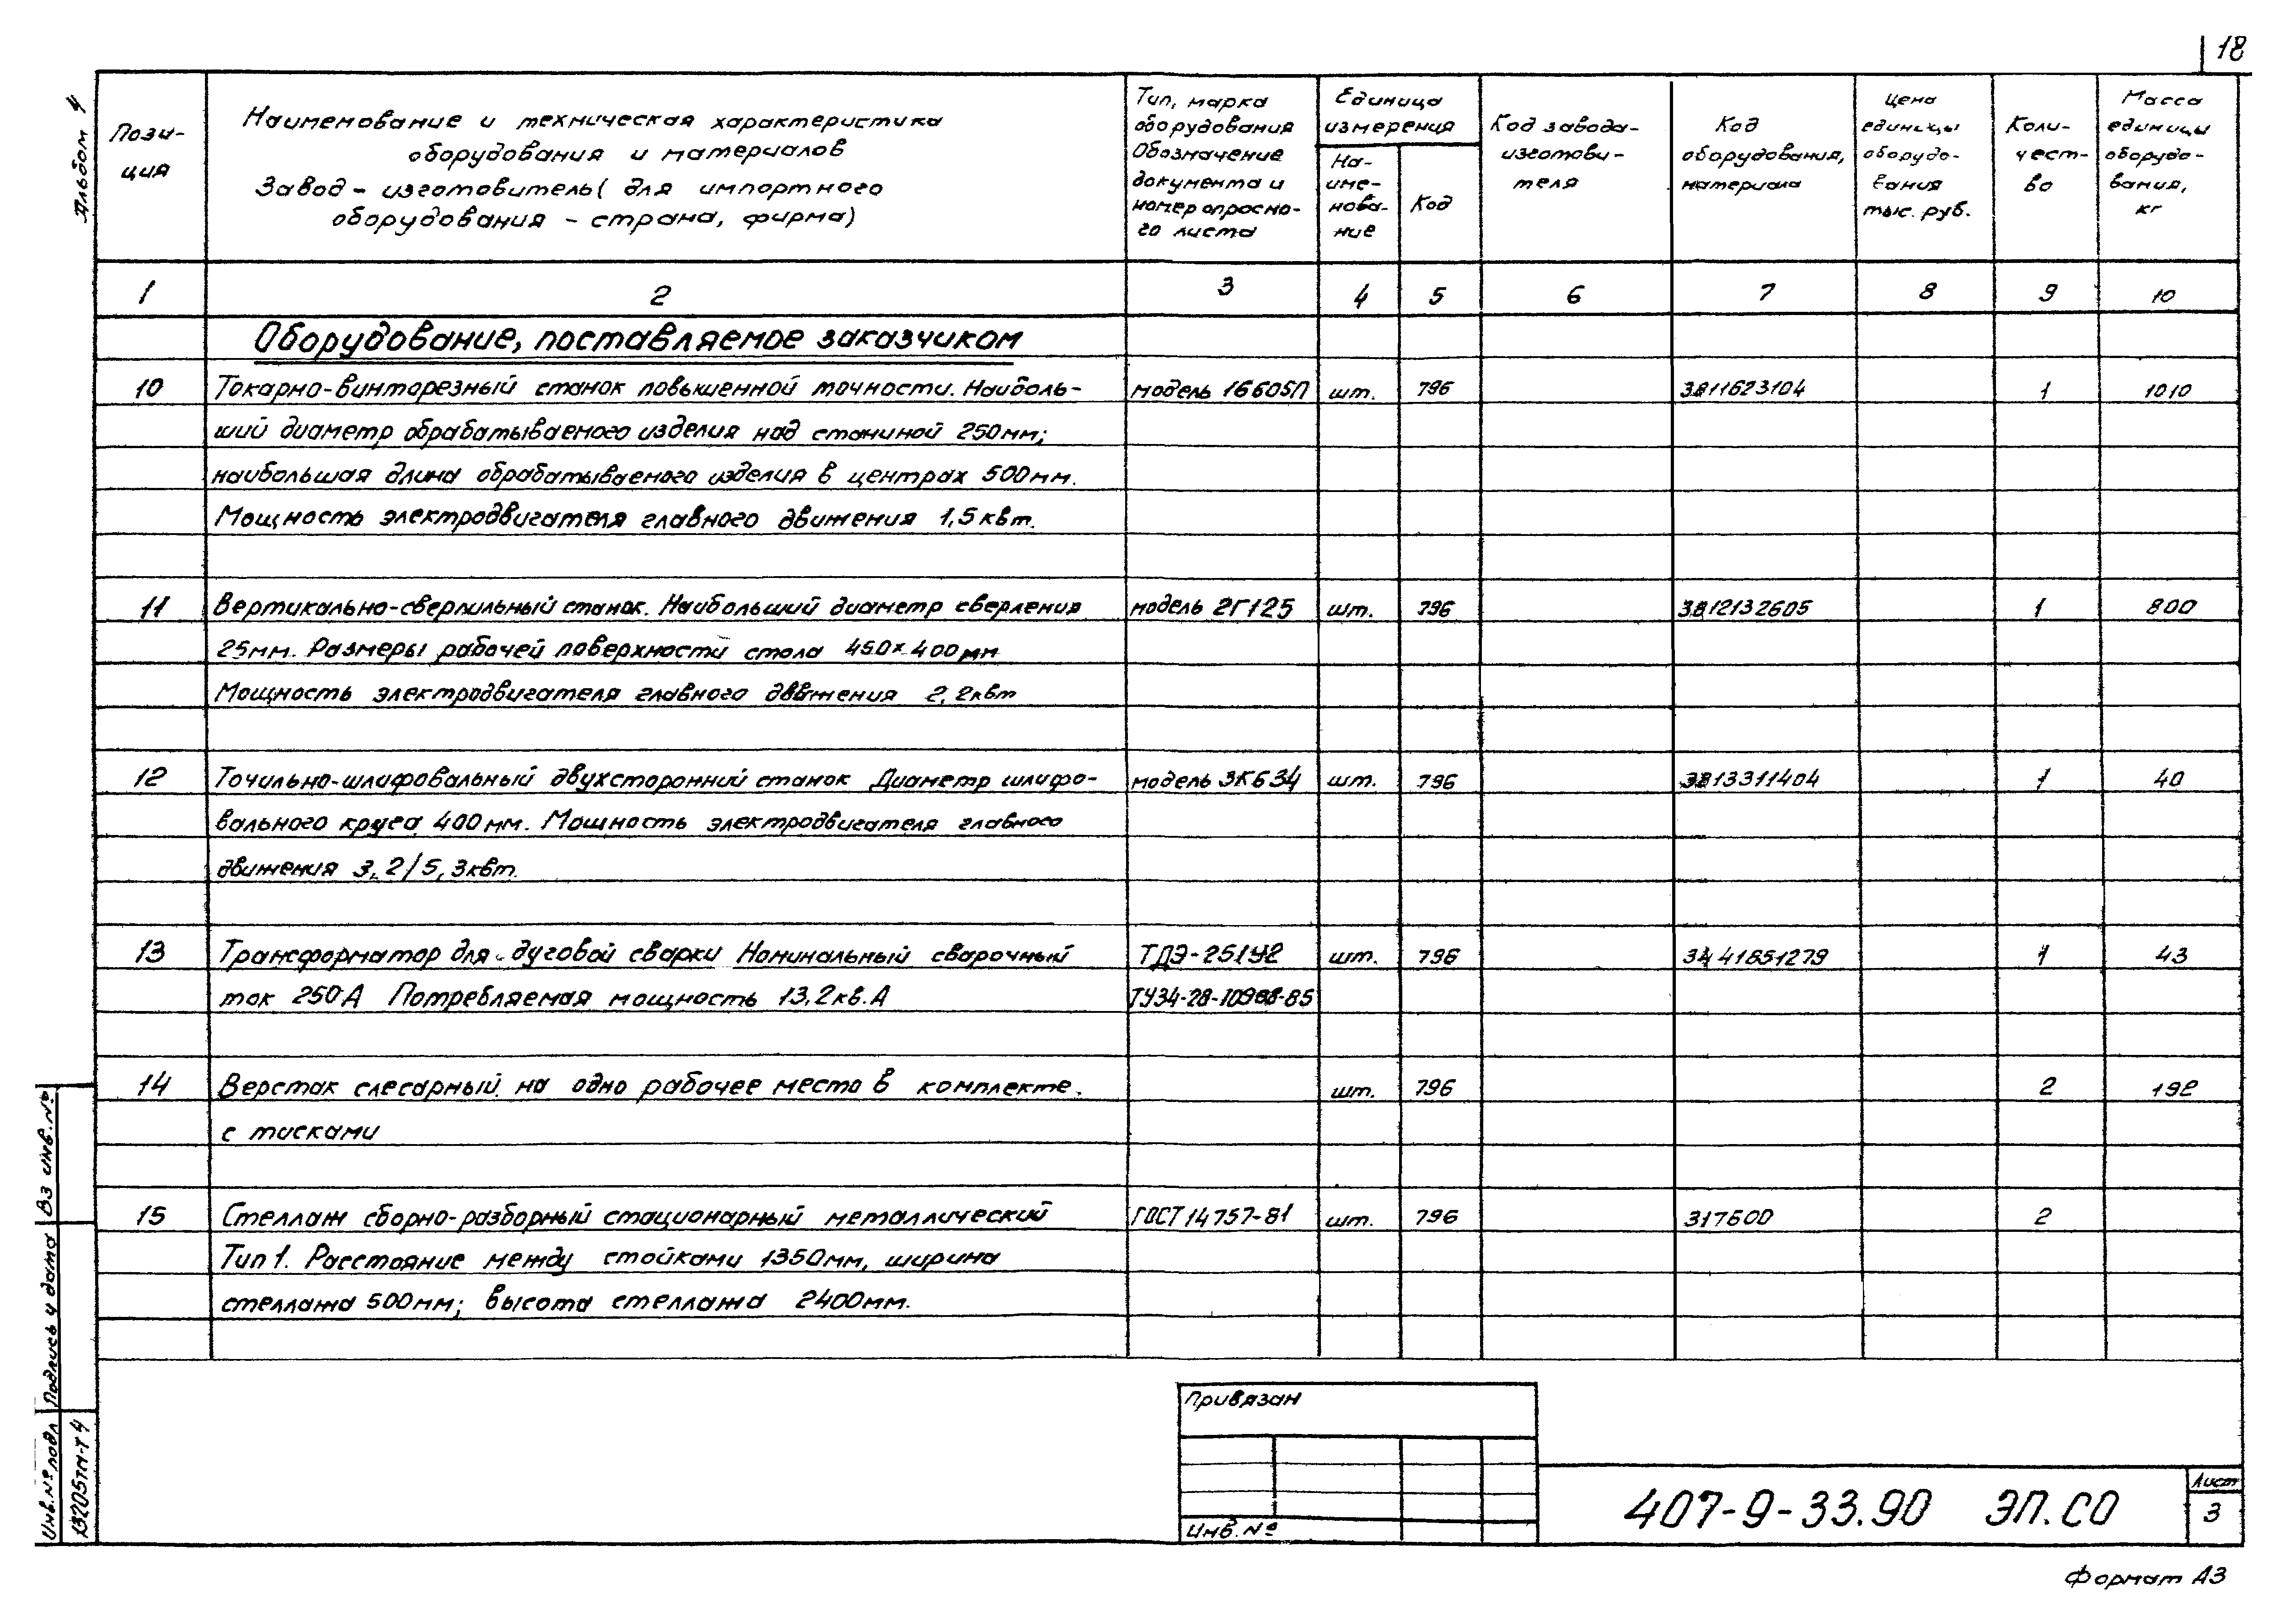 18
Альбом 4
Пози-
ция
Наименование и техническая характеристика
оборудования и материалов
Завод - изготовитель (для импортного
оборудования - страна, фирма)
Тип, марка
оборудования
Обозначение
документа и
номер опросно-
го листа
Единица
измерения
На-
име-
нова-
ние
Код
Код завода-
изготови-
теля
Код
оборудования,
материала
Цена
единицы
оборудо-
вания
тыс. руб.
Коли-
чест-
во
Масса
единицы
оборудо-
вания,
кг
1 2 3 4 5 6 7 8 9 10
Оборудование, поставляемое заказчиком
10 Токарно-винторезный станок повышенной точности. Наиболь- модель 16Б05П шт. 796 3811623104 1 1010
ший диаметр обрабатываемого изделия над станиной 250мм;
наибольшая длина обрабатываемого изделия в центрах 500мм.
Мощность электродвигателя главного движения 1,5 квт.
11 Вертикально-сверлильный станок. Наибольший диаметр сверления модель 2Г125 шт. 796 3812132605 1 800
25мм. Размеры рабочей поверхности стола 450×400мм
Мощность электродвигателя главного движения 2,2квт
12 Точильно-шлифовальный двухсторонний станок Диаметр шлифо- модель 3К634 шт. 796 3813311404 1 40
вального круга 400мм. Мощность электродвигателя главного
движения 3,2/5,3квт.
13 Трансформатор для дуговой сварки Номинальный сварочный ТДЭ-251У2 шт. 796 3441851279 1 43
ток 250А Потребляемая мощность 13,2кв.А ТУ34-28-10968-85
14 Верстак слесарный на одно рабочее место в комплекте. шт. 796 2 192
с тисками
15 Стеллаж сборно-разборный стационарный металлический ГОСТ 14757-81 шт. 796 317600 2
Тип 1. Расстояние между стойками 1350мм, ширина
стеллажа 500мм; высота стеллажа 2400мм.
Привязан
Инв.№
407-9-33.90 ЭП.СО
Лист
3
Формат А3
Вз инв.№
Подпись и дата
Инв.№ подл
13205тм-т4